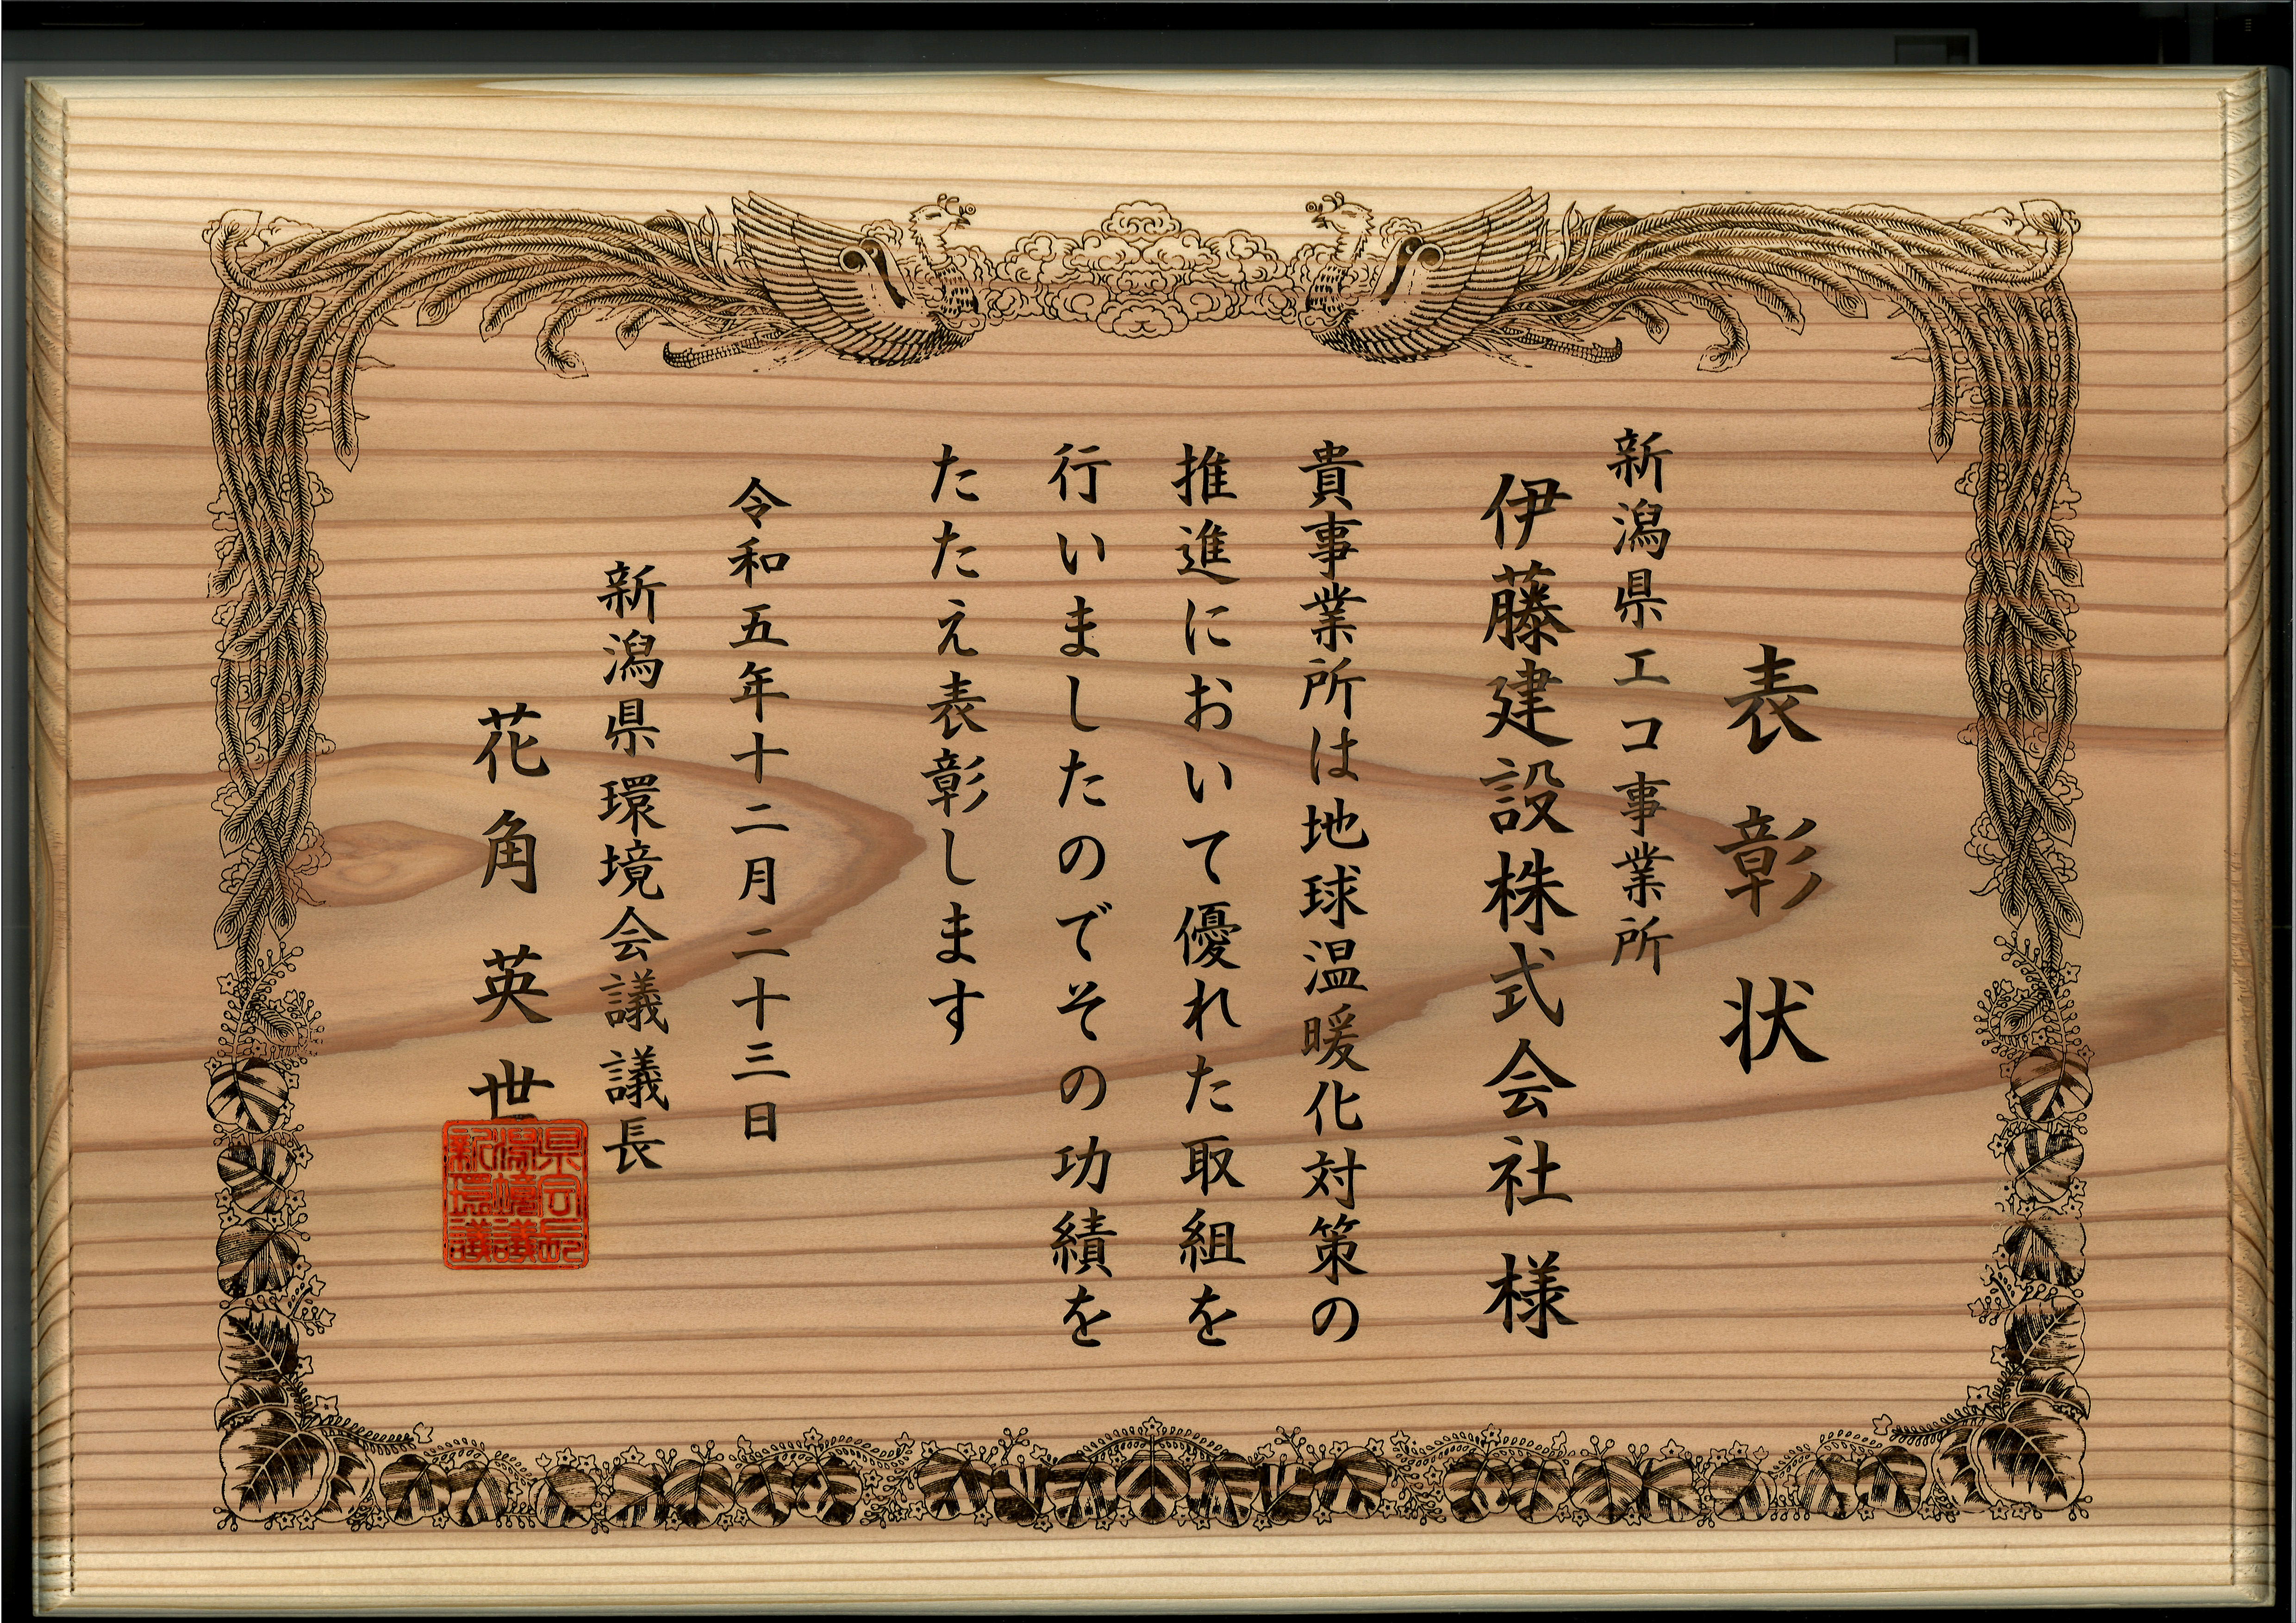 表彰状
新潟県エコ事業所
伊藤建設株式会社 様
貴事業所は地球温暖化対策の
推進において優れた取組を
行いましたのでその功績を
たたえ表彰します
令和五年十二月二十三日
新潟県環境会議議長
花角英世
県会長
潟境議
新環議